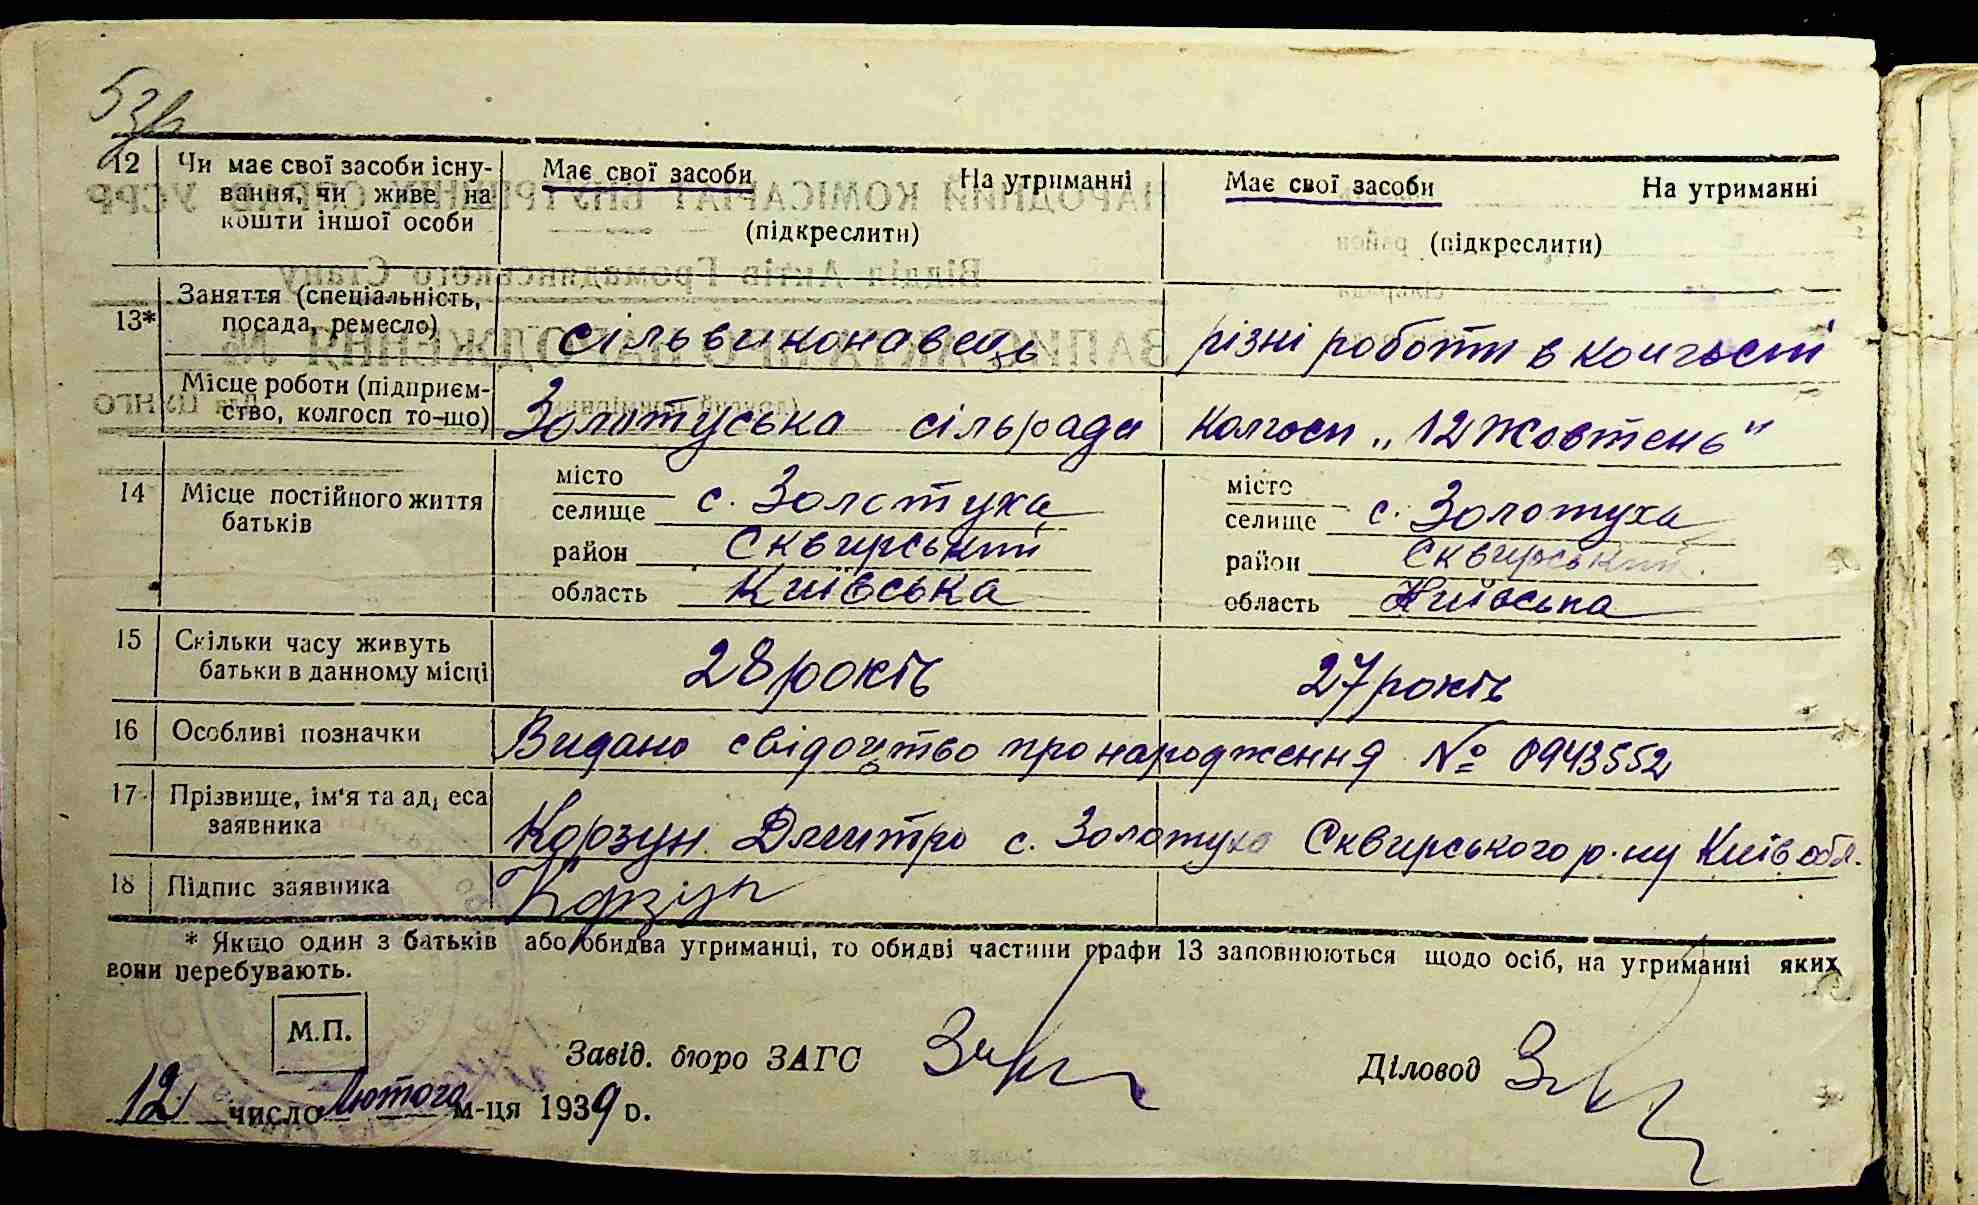 53
12 Чи має свої засоби існу- Має свої засоби На утриманні Має свої засоби На утриманні
вання, чи живе на
кошти іншої особи (підкреслити) (підкреслити)
13* Заняття (спеціальність,
посада, ремесло) сільвиконавець різні роботи в колгоспі
Місце роботи (підприєм-
ство, колгосп то-що) Золотуська сільрада Колгосп „12 Жовтень"
14 Місце постійного життя
батьків
місто місто
селище с. Золотуха селище с. Золотуха
район Сквирський район Сквирський
область Київська область Київська
15 Скільки часу живуть
батьки в данному місці 28 років 27 років
16 Особливі позначки Видано свідоцтво про народження № 0943552
17 Прізвище, ім'я та адреса
заявника Корзун Дмитро с. Золотуха Сквирського р-ну Київ обл.
18 Підпис заявника Корзун
* Якщо один з батьків або обидва утриманці, то обидві частини графи 13 заповнюються щодо осіб, на утриманні яких
вони перебувають.
М.П.
Завід. бюро ЗАГС Діловод
12 число лютого м-ця 1939 р.